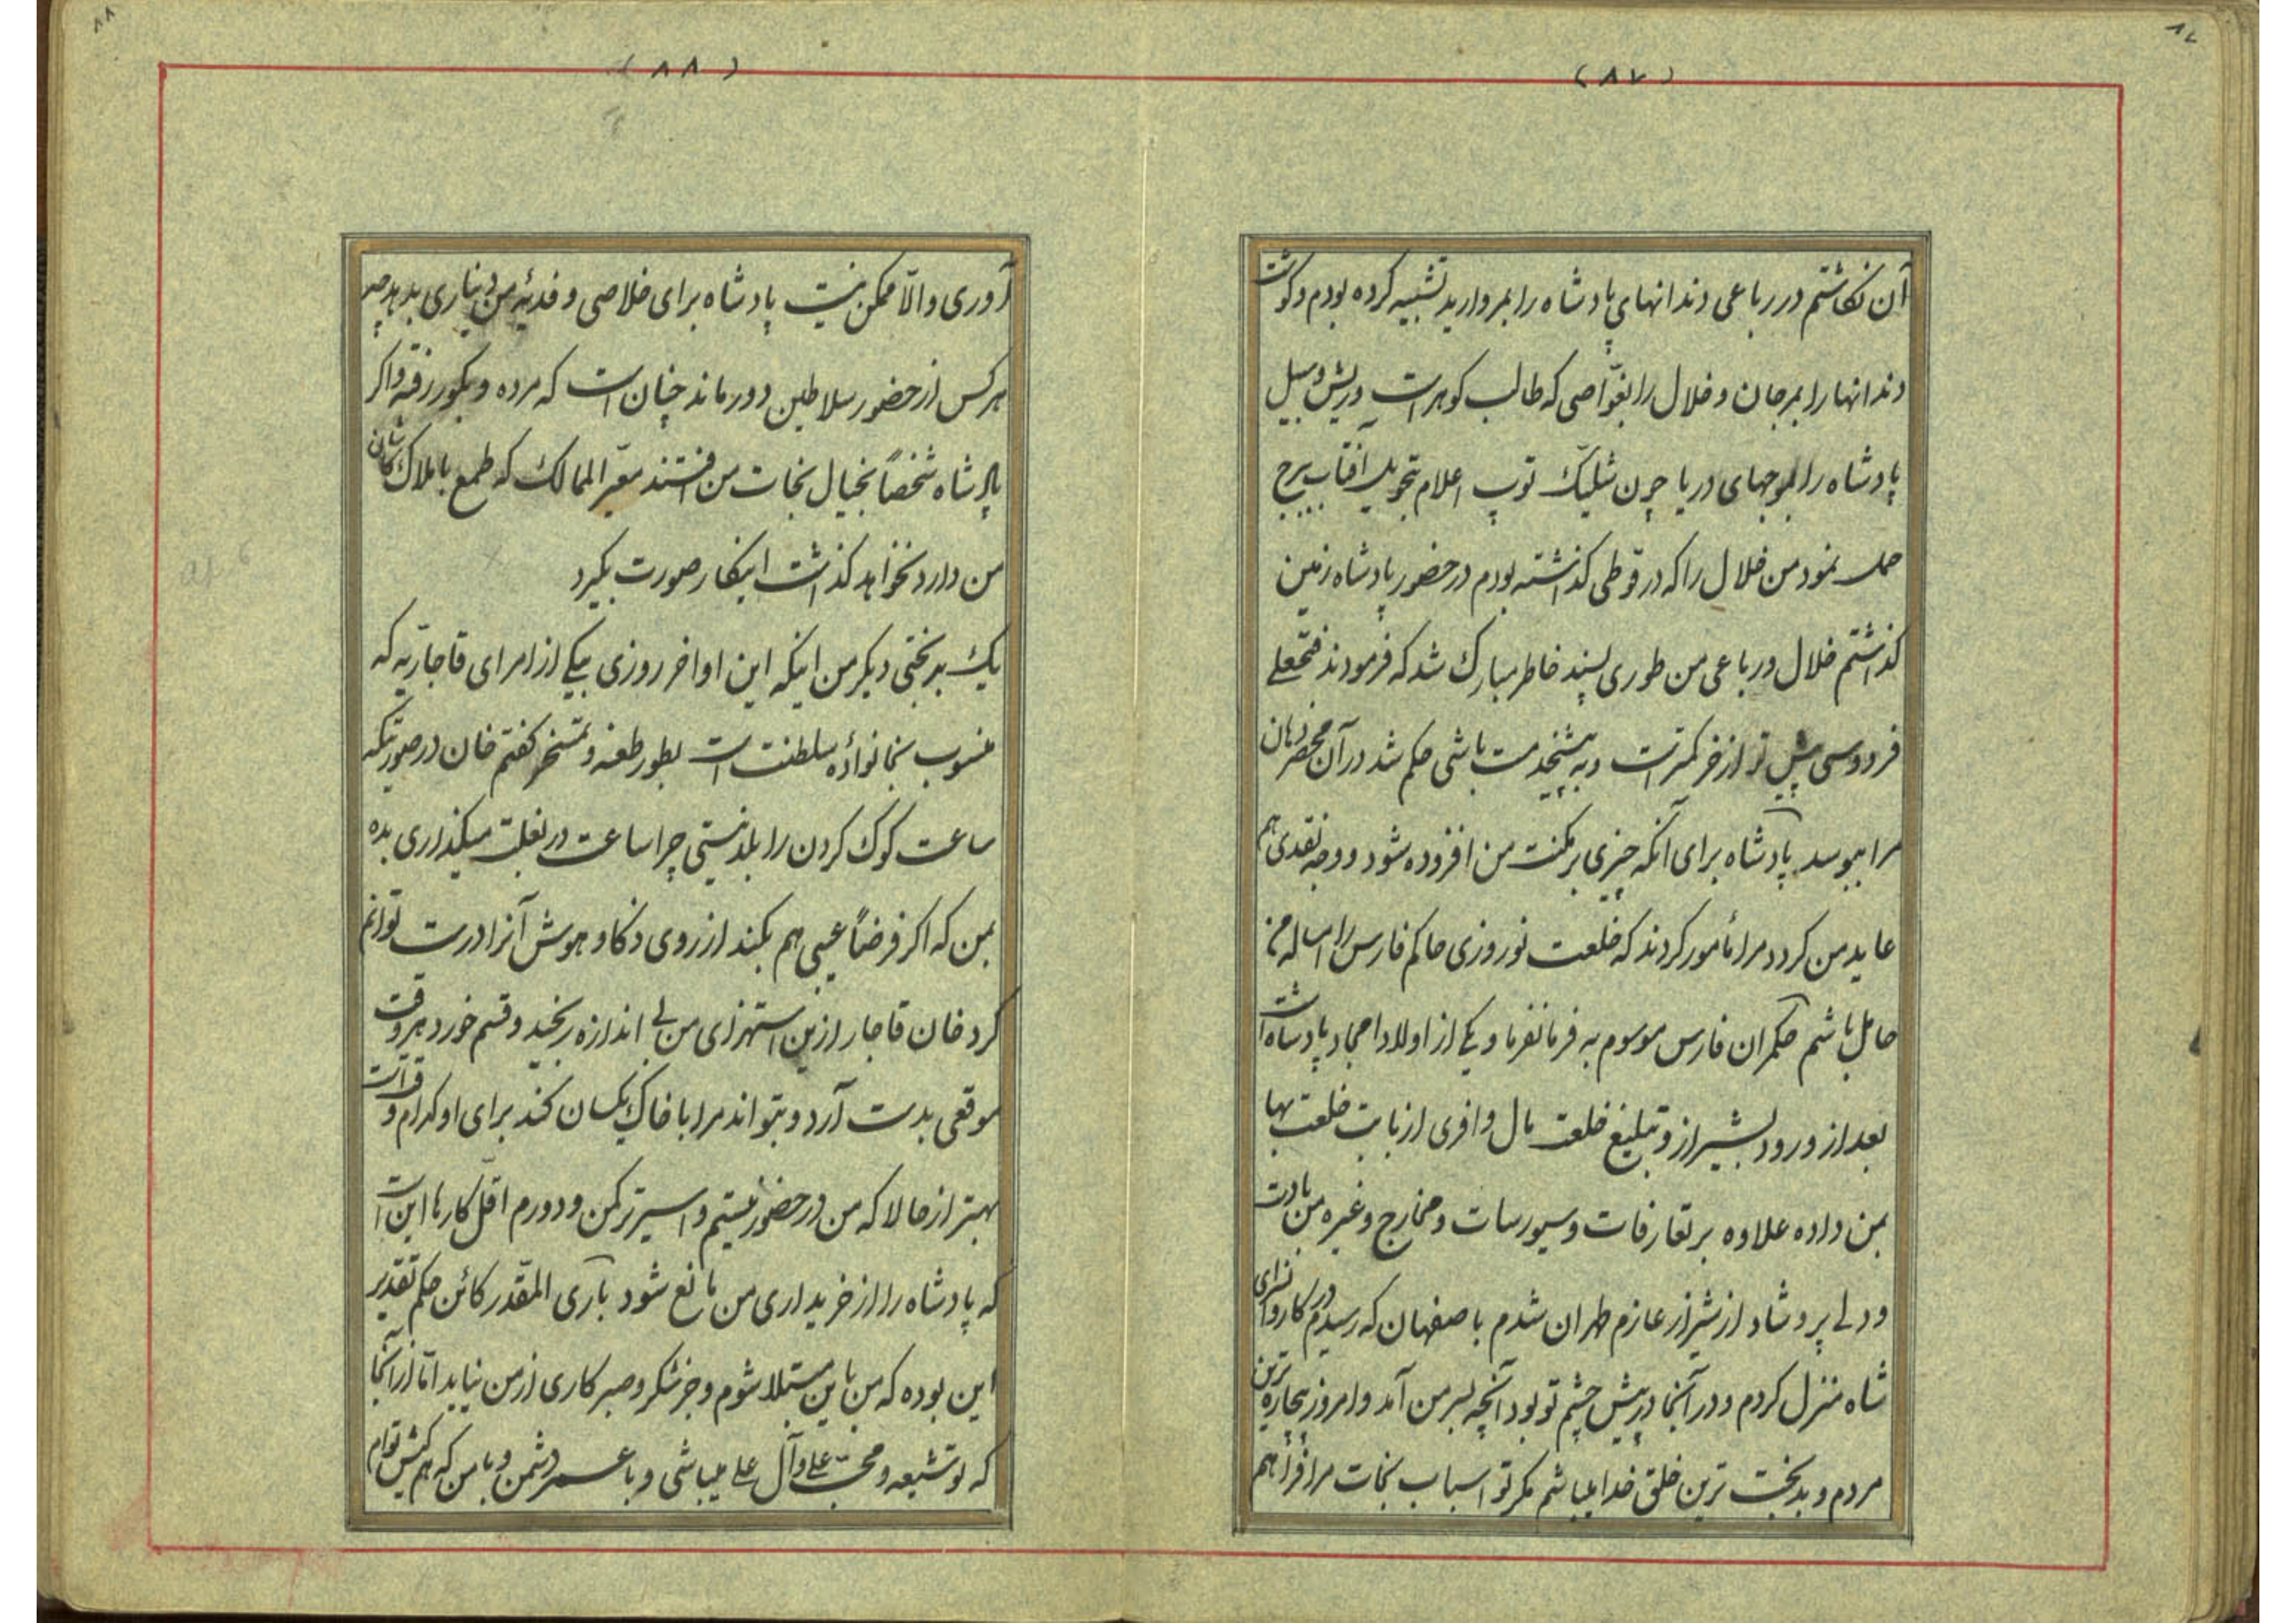 ۸۷
(۸۷)
آن نگاشتم در رباعی دندانهای پادشاه را بمروارید تشبیه کرده بودم و گوشت
دندانها را بمرجان و خلال را بغوّاصی که طالب گوهر است و ریش و سبیل
پادشاه را بموجهای دریا چون شلیک توپ اعلام تحویل آفتاب ببرج
حمل نمود من خلال را که در قوطی گذاشته بودم در حضور پادشاه زمین
گذاشتم خلال و رباعی من طوری پسند خاطر مبارک شد که فرمودند فتحعلی
فردوسی پیش تو از خر کمتر است و به پیشخدمت باشی حکم شد در آن محضر دهان
مرا ببوسد پادشاه برای آنکه چیزی بر مکنت من افزوده شود و وجه نقدی هم
عاید من گردد مرا مأمور کردند که خلعت نوروزی حاکم فارس را امساله من
حامل باشم حکمران فارس موسوم به فرمانفرما و یکی از اولاد امجاد پادشاه است
بعد از ورود بشیراز و تبلیغ خلعت مال وافری از بابت خلعت بها
بمن داده علاوه بر تعارفات و سیورسات و مخارج و غیره من با دست
و دلی پر و شاد از شیراز عازم طهران شدم باصفهان که رسیدم در کاروانسرای
شاه منزل کردم و در آنجا در پیش چشم تو بود آنچه بسر من آمد و امروز بیچاره ترین
مردم و بدبخت ترین خلق خدا میباشم مگر تو اسباب نجات مرا فراهم
۸۸
(۸۸)
آوری و الّا ممکن نیست پادشاه برای خلاصی و فدیهٔ من دیناری بدهد چه
هر کس از حضور سلاطین دور ماند چنان است که مرده و بگور رفته و اگر
پادشاه شخصاً بخیال نجات من افتند معیّر الممالک که طمع باملاک کاشان
من دارد نخواهد گذاشت اینکار صورت بگیرد
یک بدبختی دیگر من اینکه این اواخر روزی بیکی از امرای قاجاریّه که
منسوب بخانوادهٔ سلطنت است بطور طعنه و تمسخر گفتم خان در صورتیکه
ساعت کوک کردن را بلد نیستی چرا ساعت در بغلت میگذاری بده
بمن که اگر فرضاً عیبی هم بکند از روی ذکا و هوش آنرا درست توانم
کرد خان قاجار ازین استهزای من بی اندازه رنجید و قسم خورد هر وقت
موقعی بدست آرد و بتواند مرا با خاک یکسان کند برای او کدام وقت
بهتر از حالا که من در حضور نیستم و اسیر ترکمن و دورم اقل کارها این است
که پادشاه را از خریداری من مانع شود باری المقدّر کائن حکم تقدیر
این بوده که من باین مبتلا شوم و جز شکر و صبر کاری از من نیاید امّا از آنجا
که تو شیعه و محبّ علی و آل علی میباشی و با عمر دشمن و با من که هم کیش توام